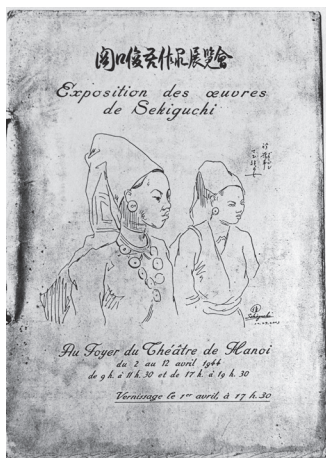 関口俊吾作品展覧會
Exposition des œuvres
de Sekiguchi
Sekiguchi
Au Foyer du Théâtre de Hanoi
du 2 au 12 avril 1944
de 9 h. à 11 h. 30 et de 17 h. à 19 h. 30
Vernissage le 1er avril, à 17 h. 30